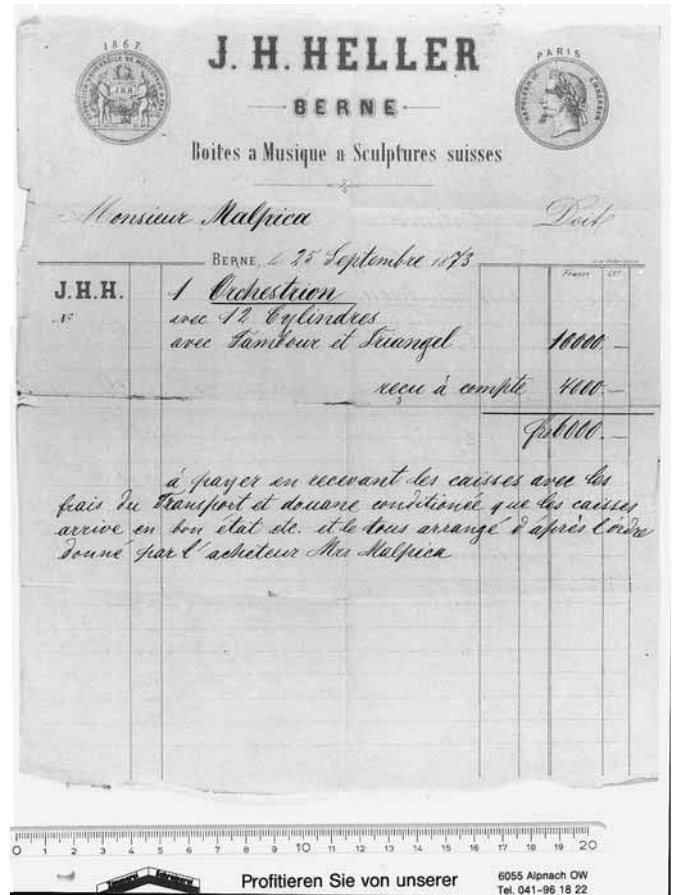 1867
PARIS
J. H. HELLER
BERNE
Boites a Musique & Sculptures suisses
Monsieur Malpica Doit
BERNE, le 25 Septembre 1873
Francs Cts
J.H.H. 1 Orchestrion
No avec 12 Cylindres
avec Tambour et Triangel 10000.—
reçu à compte 4000.—
frs 6000.—
à payer en recevant les caisses avec les
frais du Transport et douane conditionée que les caisses
arrive en bon état etc. et le tous arrangé d'après l'ordre
donné par l'acheteur Mrs Malpica
0 1 2 3 4 5 6 7 8 9 10 11 12 13 14 15 16 17 18 19 20
Profitieren Sie von unserer
6055 Alpnach OW
Tel. 041-96 18 22